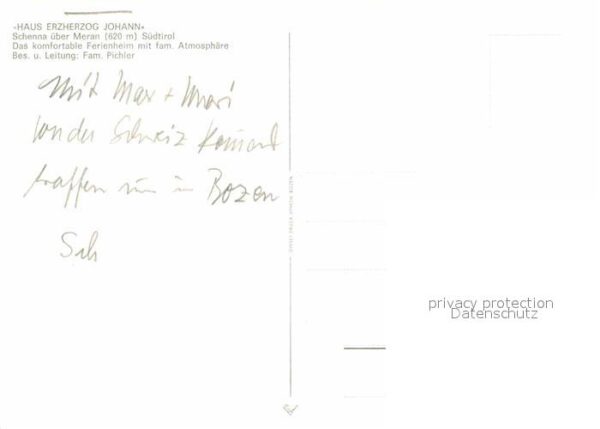 «HAUS ERZHERZOG JOHANN»
Schenna über Meran (620 m) Südtirol
Das komfortable Ferienheim mit fam. Atmosphäre
Bes. u. Leitung: Fam. Pichler
Mit Max +
von der Schweiz
traffen in Bozen
Sch
privacy protection
Datenschutz